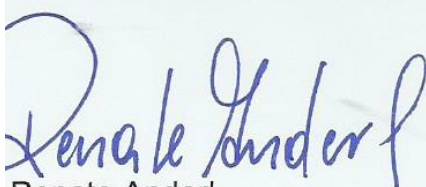 Renate Anderl
Renate Anderl